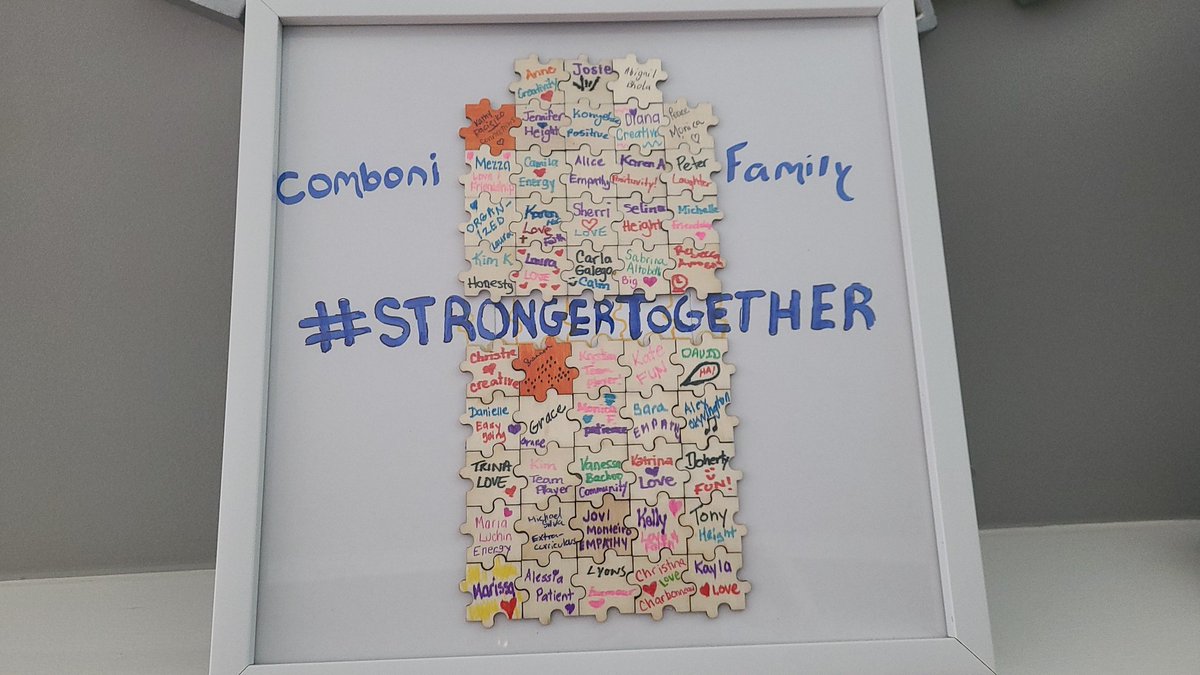 Anne
Creativity
Josie
Abigail
Jennifer
Height
Positive
Diana
Creative
Peace
Monica
comboni
Family
Mezza
Love &
Friendship
Camila
Energy
Alice
Empathy
Karen A
Peter
Laughter
ORGAN-
IZED
Laura
Karen
Love
+ Faith
Sherri
LOVE
Selina
Height
Michelle
Friendship
Kim K
Honesty
Laura
LOVE
Carla
Galego
Calm
Sabrina
Altobelli
Big
Rebecca
#STRONGERTOGETHER
Christie
creative
Shannon
Kristin
Team
Player!
Kate
FUN
DAVID
HA!
Danielle
Easy
going
Grace
Grace
Monica
F
patience
Sara
EMPATHY
Alex
TRINA
LOVE
Kim
Team
Player
Vanessa
Community
Katrina
Love
Doherty
FUN!
Maria
Luchin
Energy
Michael
Silva
Extra-
curricular
JOVI
Monteiro
EMPATHY
Kelly
Tony
Height
Marissa
Alessia
Patient
LYONS
Humour
Christina
Love
Charbonneau
Kayla
LOVE